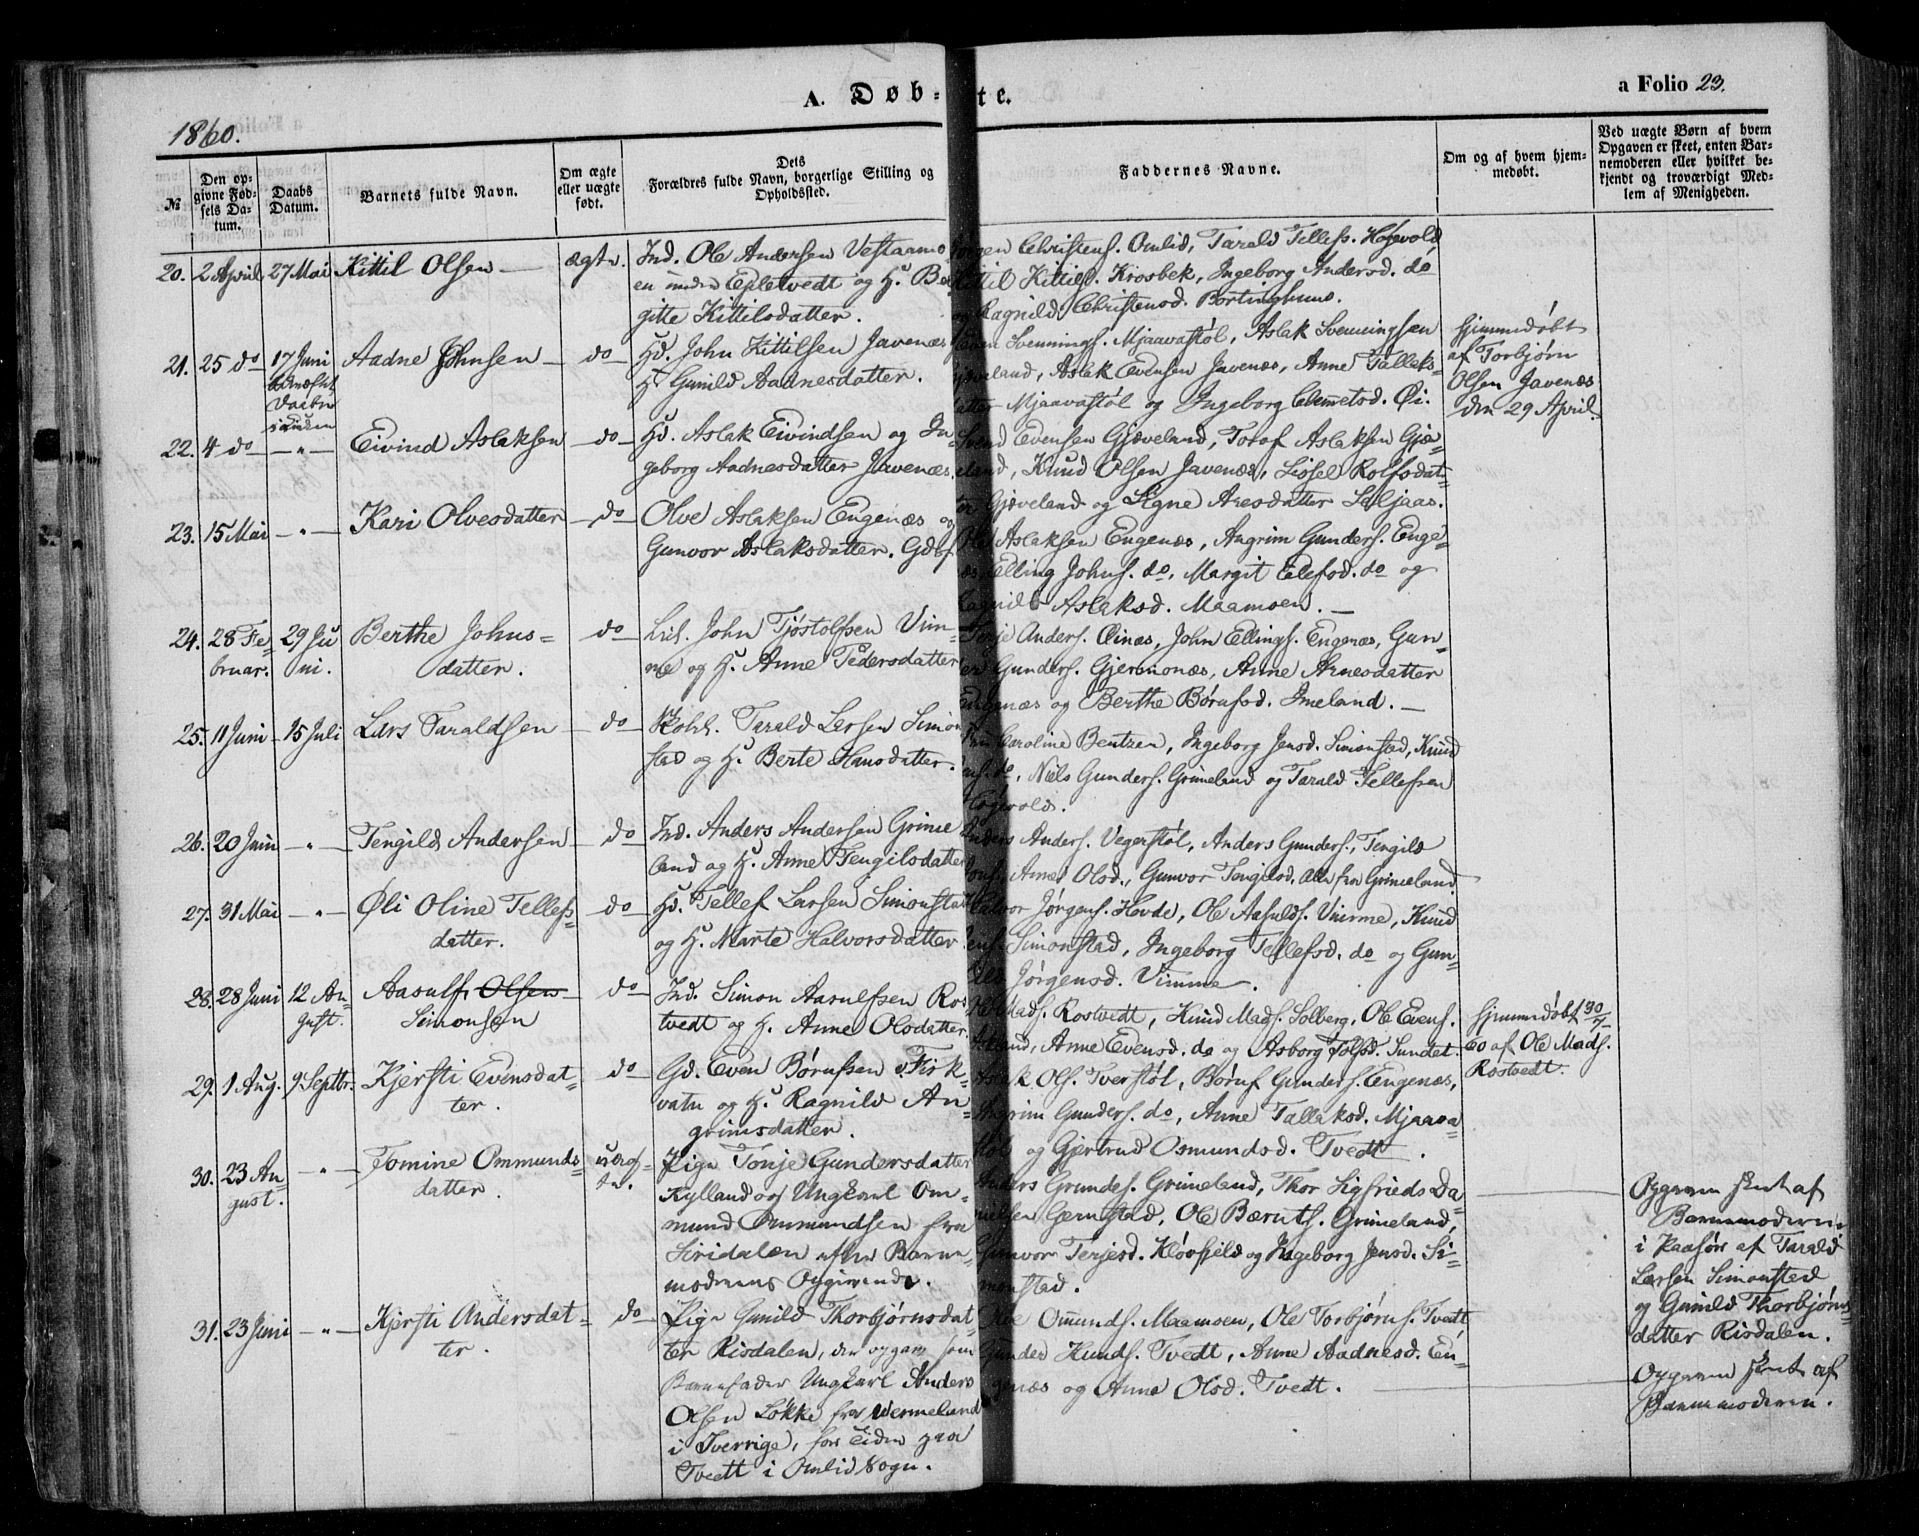 A. Døb-te.
a Folio 23.
1860.
№
Den opgivne Fødsels Datum.
Daabs Datum.
Barnets fulde Navn.
Om ægte eller uægte født.
Dets Forældres fulde Navn, borgerlige Stilling og Opholdssted.
Faddernes Navne.
Om og af hvem hjemmedøbt.
Ved uægte Børn af hvem Opgaven er skeet, enten Barnemoderen eller hvilket bekjendt og troværdigt Medlem af Menigheden.
20. 2 April 27 Mai Kittil Olsen — ægte.
Ind. Ole Andersen Vestaamo
en under Epletvedt og H. Ber
gitte Kittilsdatter.
Jørgen Christens. Omlid, Tarald Tellefs. Høgevold
Kittil Kittils. Krosbek, Ingeborg Andersd. do
og Ragnild Christensd. Bortinghuus.
21. 25 do 17 Juni Aadne Johnsen — do —
Hd. John Kittilsen Javenæs
H. Gunild Aadnesdatter.
Svennings. Mjaavastøl, Aslak Svenningsen
Gjæveland, Aslak Evensen Javenæs, Anne Tallaks-
datter Mjaavastøl og Ingeborg Clemetsd. Øi.
Hjemmedøbt
af Torbjørn
Olsen Javenæs
den 29 April.
22. 4 do — " — Eivind Aslaksen — do —
Hd. Aslak Eivindsen og In-
geborg Aadnesdatter Javenæs.
Svend Evensen Gjæveland, Toraf Aslaksen Gjæ-
veland, Knud Olsen Javenæs, Sissel Rolfsdat-
ter Gjæveland og Signe Aresdatter Seljaas.
23. 15 Mai — " — Kari Olvesdatter — do —
Olve Aslaksen Engenæs og
Gunvor Aslaksdatter. Gdbf.
Ole Aslaksen Engenæs, Angrim Gunders. Enge-
næs, Elling Johns. do, Margit Elefsd. do og
Ragnild Aslaksd. Maamoen. —
24. 28 Fe-
bruar. 29 Ju
ni. Berthe Johns-
datter. do
Leil. John Tjøstolfsen Vim-
me og H. Anne Pedersdatter
Terje Anders. Øinæs, John Ellings. Engenæs, Gun-
er Gunders. Gjermonæs, Anne Arnesdatter
Engenæs og Berthe Børufsd. Imeland. —
25. 11 Juni — 15 Juli Lars Taraldsen — do —
Skoleh. Tarald Larsen Simon
stad og H. Berte Hansdatter.
Caroline Bentzen, Ingeborg Jensd. Simonstad, Knud
Jens. do, Niels Gunders. Grimeland og Tarald Tellefsen
Høgevold.
26. 20 Juni — " — Tengild Andersen — do
Ind. Anders Andersen Grime
land og H. Anne Tengilsdatter
Anders Anders. Vegerstøl, Anders Gunders., Tengild
Jons. Anne Olsd., Gunvor Tengilsd. Alle fra Grimeland
27. 31 Mai — " — Øli Oline Tellefs
datter. do
Hd. Tellef Larsen Simonstad
og H. Marte Halvorsdatter
Halvor Jørgens. Hovde, Ole Aasulds. Vimme, Knud
Jens. Simonstad, Ingeborg Tellefsd. do og Gun-
ild Jørgensd. Vimme.
28. 28 Juni 12 Au-
gust. Aasulf Olsen
Simonsen do
Ind. Simon Aasulfsen Ros
tvedt og H. Anne Olsdatter.
Ole Mads. Rostvedt, Knud Mads. Solberg, Ole Evens.
Aaland, Anne Evensd. do og Asborg Tolfsd. Sundet.
Hjemmedøbt 30/7
60 af Ole Mads.
Rostvedt.
29. 1 Aug. 9 Septbr. Kjersti Evensdat-
ter. do
Gd. Even Børufsen Fisk-
vatn og H. Ragnild An-
grimsdatter.
Aslak Ols. Tverstøl, Børuf Gunders. Engenæs,
Angrim Gunders. do, Anne Tallaksd. Mjaava-
støl og Gjertrud Osmundsd. Tvedt.
30. 23 Au-
gust. — " — Tomine Ommunds-
datter. uæg-
te.
Pige Tonje Gundersdatter
Kylland og Ungkarl Om-
mund Ommundsen fra
Siridalen efter Barne-
moderens Opgivende.
Anders Grundes. Grimeland, Thor Sigfrieds Da-
nielsen Gernstad, Ole Bernts. Grimeland,
Gunvor Terjesd. Kløvfjeld og Ingeborg Jensd. Si-
monstad.
Opgaven skeet af
Barnemoderen
i Paahør af Tarald
Larsen Simonstad
og Gunild Thorbjørns
datter Risdalen.
31. 23 Juni — " — Kjersti Andersdat-
ter. do
Pige Gunild Thorbjørnsdat-
ter Risdalen, der opgav som
Barnefader Ungkarl Anders
Olsen Løkke fra Wermeland
i Sverrige, for Tiden paa
Tvedt i Omlid Sogn.
Ole Omunds. Maamoen, Ole Torbjørns. Tvedt
Gunder Knuds. Tvedt, Anne Aadnesd. En-
genæs og Anne Olsd. Tvedt.
Opgaven skeet af
Barnemoderen.